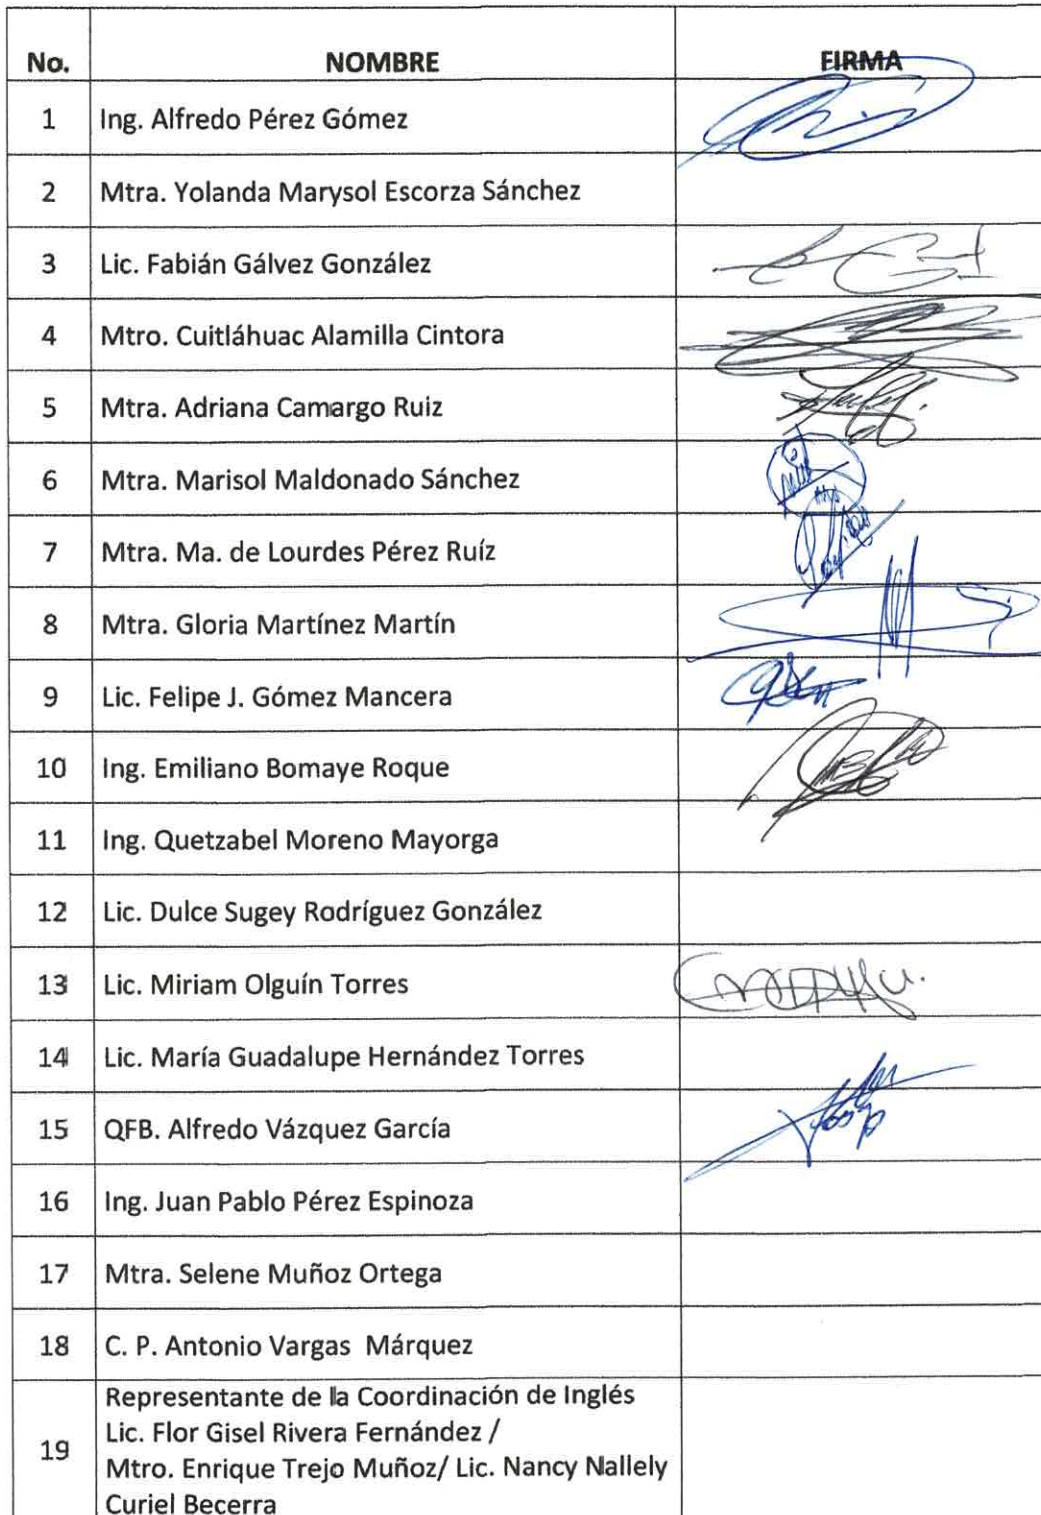 No. NOMBRE FIRMA
1 Ing. Alfredo Pérez Gómez
2 Mtra. Yolanda Marysol Escorza Sánchez
3 Lic. Fabián Gálvez González
4 Mtro. Cuitláhuac Alamilla Cintora
5 Mtra. Adriana Camargo Ruiz
6 Mtra. Marisol Maldonado Sánchez
7 Mtra. Ma. de Lourdes Pérez Ruíz
8 Mtra. Gloria Martínez Martín
9 Lic. Felipe J. Gómez Mancera
10 Ing. Emiliano Bomaye Roque
11 Ing. Quetzabel Moreno Mayorga
12 Lic. Dulce Sugey Rodríguez González
13 Lic. Miriam Olguín Torres
14 Lic. María Guadalupe Hernández Torres
15 QFB. Alfredo Vázquez García
16 Ing. Juan Pablo Pérez Espinoza
17 Mtra. Selene Muñoz Ortega
18 C. P. Antonio Vargas Márquez
19 Representante de la Coordinación de Inglés
Lic. Flor Gisel Rivera Fernández /
Mtro. Enrique Trejo Muñoz/ Lic. Nancy Nallely
Curiel Becerra